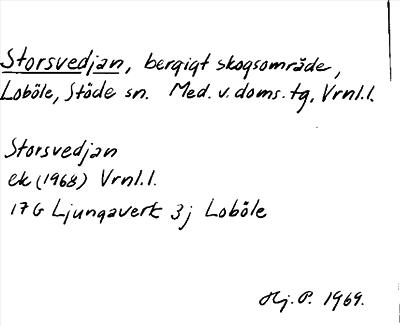 Storsvedjan, bergigt skogsområde,
Loböle, Stöde sn. Med. v. doms. tg, Vrnl.l.
Storsvedjan
ek (1968) Vrnl.l.
17G Ljungaverk 3j Loböle
Hj. P. 1969.